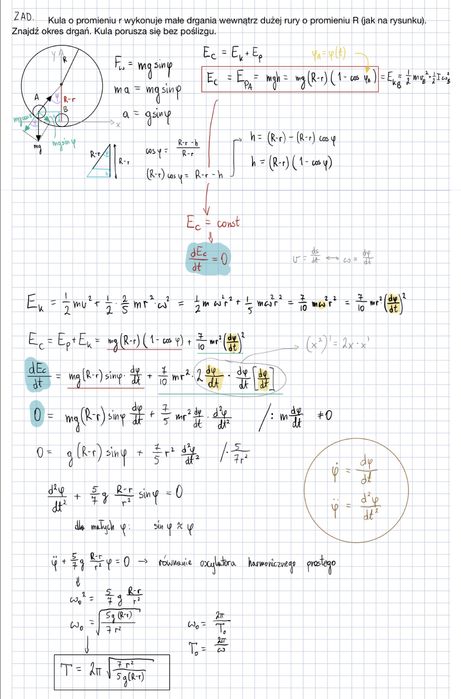 ZAD. Kula o promieniu r wykonuje małe drgania wewnątrz dużej rury o promieniu R (jak na rysunku).
Znajdź okres drgań. Kula porusza się bez poślizgu.
yA
R
A
φ
R-r
B
x
mg
mg sinφ
F_w = mg sinφ
ma = mg sinφ
a = g sinφ
E_c = E_k + E_p
φ_A = φ(t)
E_c = E_pA = mgh = mg(R-r)(1 - cos φ_A) = E_kB = 1/2 m v_B² + 1/2 I ω_B²
R-r
R-r
cosφ = (R-r-h)/(R-r)
(R-r) cosφ = R-r-h
h = (R-r) - (R-r) cosφ
h = (R-r)(1 - cosφ)
E_c = const
dE_c/dt = 0
v = ds/dt ↔ ω = dφ/dt
E_k = 1/2 mv² + 1/2 · 2/5 mr² · ω² = 1/2 m ω² r² + 1/5 mω²r² = 7/10 mω²r² = 7/10 mr² (dφ/dt)²
E_c = E_p + E_k = mg(R-r)(1 - cos φ) + 7/10 mr² (dφ/dt)²
(x²)' = 2x · x'
dE_c/dt = mg(R-r) sinφ · dφ/dt + 7/10 mr² · 2 dφ/dt · d/dt [dφ/dt]
0 = mg(R-r) sinφ dφ/dt + 7/5 mr² dφ/dt · d²φ/dt² /: m dφ/dt ≠ 0
0 = g(R-r) sinφ + 7/5 r² d²φ/dt² /· 5/7r²
d²φ/dt² + 5/7 g (R-r)/r² sinφ = 0
dla małych φ: sinφ ≈ φ
φ̇ = dφ/dt
φ̈ = d²φ/dt²
φ̈ + 5/7 g (R-r)/r² φ = 0 → równanie oscylatora harmonicznego prostego
ω₀² = 5/7 g (R-r)/r²
ω₀ = √(5g(R-r)/7r²)
ω₀ = 2π/T₀
T₀ = 2π/ω
T = 2π √(7r²/5g(R-r))